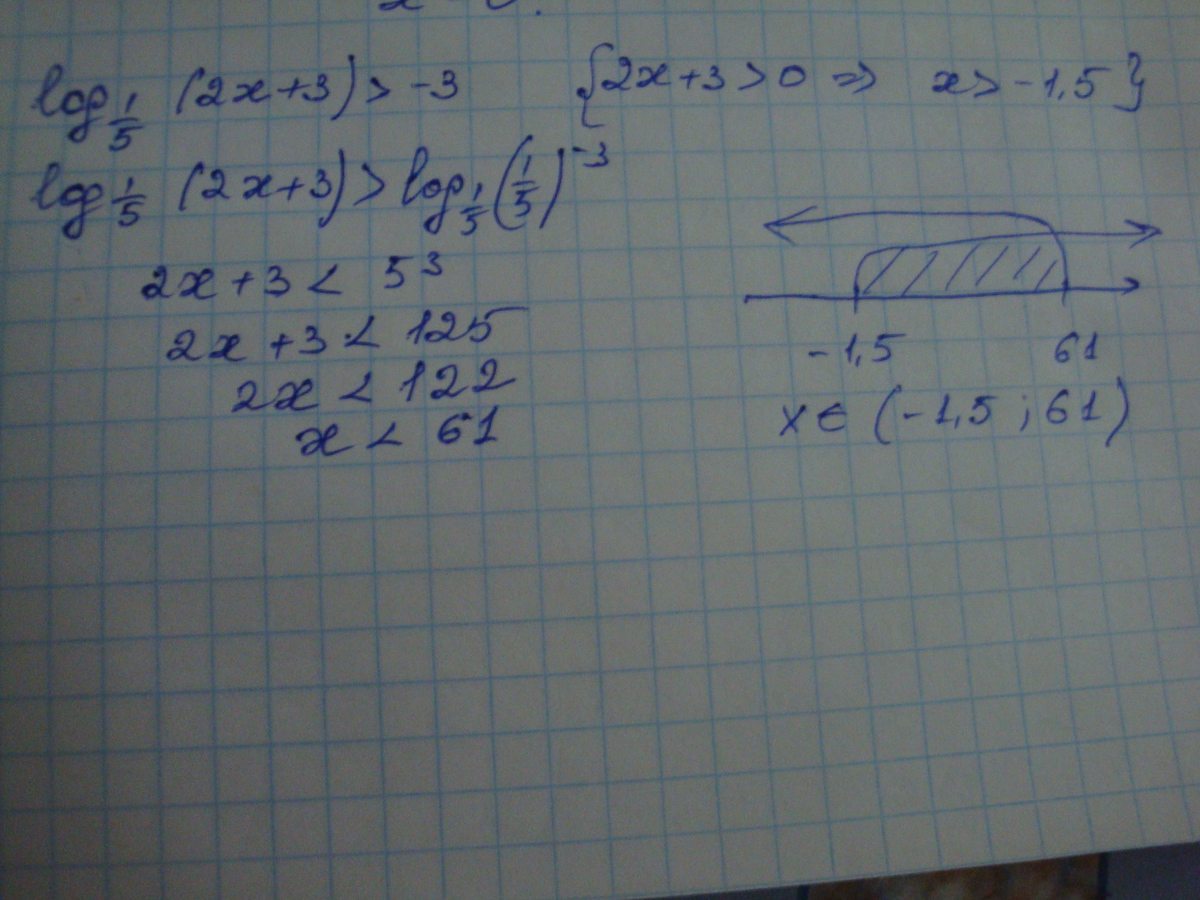 log_{1/5} (2x+3) > -3 {2x+3 > 0 ⇒ x > -1,5}
log_{1/5} (2x+3) > log_{1/5} (1/5)^{-3}
2x + 3 < 5^3
2x + 3 < 125
2x < 122
x < 61
-1,5 61
x ∈ (-1,5 ; 61)